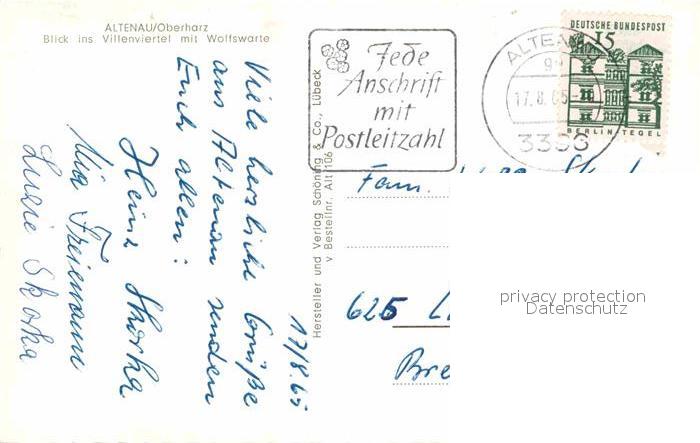 ALTENAU/Oberharz
Blick ins Villenviertel mit Wolfswarte
Viele herzliche Grüße
aus Altenau senden
Euch allen:
Heinz Skorka
Mia Freimann
Luzie Skorka
17/8.65
Hersteller und Verlag Schöning & Co., Lübeck
Bestellnr. Alt 106
Jede
Anschrift
mit
Postleitzahl
ALTENAU
17.8.65
3396
DEUTSCHE BUNDESPOST
15
BERLIN TEGEL
Fam.
625 L
Bre
privacy protection
Datenschutz